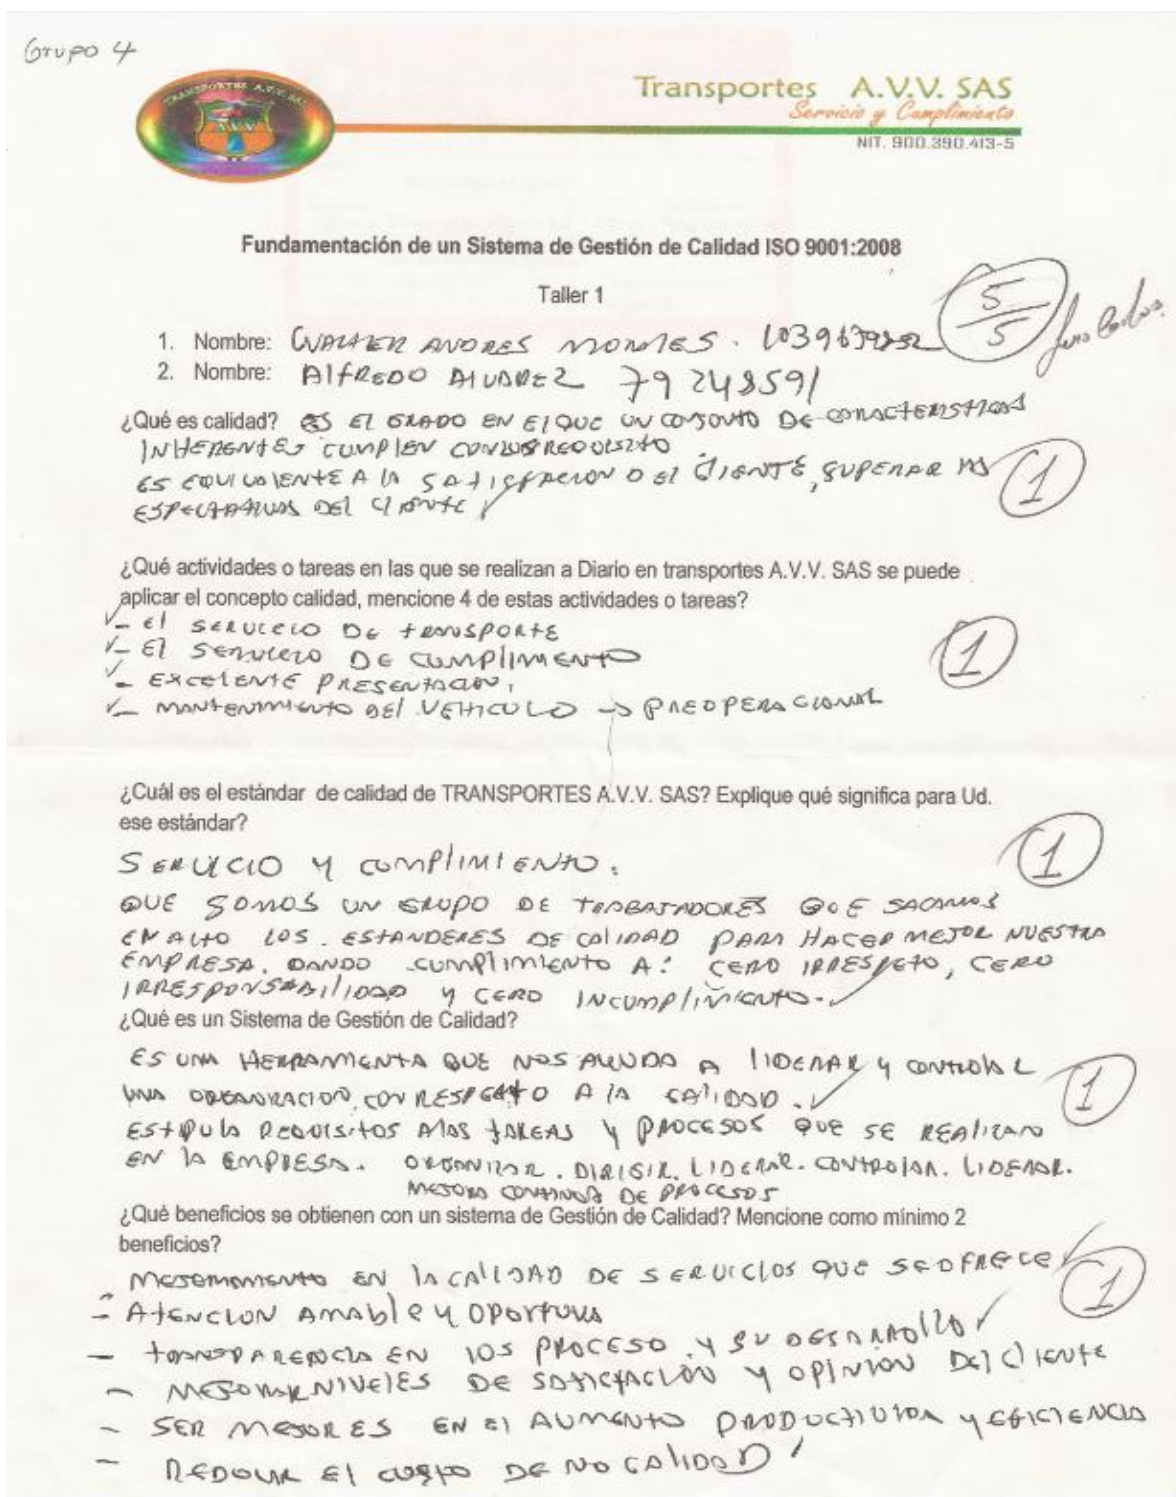 Grupo 4
TRANSPORTES A.V.V. SAS
A.V.V
Transportes A.V.V. SAS
Servicio y Cumplimiento
NIT. 900.390.413-5
Fundamentación de un Sistema de Gestión de Calidad ISO 9001:2008
Taller 1
5/5
1. Nombre: WALTER ANDRES MORALES.
2. Nombre: AlfREDO AlVAREZ 79248591
¿Qué es calidad? ES El GRADO EN El QUE UN CONJUNTO DE CARACTERISTICAS
INHERENTES CUMPLEN CON LOS REQUISITO
ES EQUIVALENTE A lA SATISFACION D El CLIENTE, SUPERAR lAS
ESPECTATIVAS DEl CLIENTE
1
¿Qué actividades o tareas en las que se realizan a Diario en transportes A.V.V. SAS se puede
aplicar el concepto calidad, mencione 4 de estas actividades o tareas?
- El SERVICIO DE tRANSPORTE
- El SERVICIO DE CUMPlIMIENTO
- EXCElENTE PRESENTACION.
- MANTENIMIENTO DEl VEHICULO → PREOPERACIONAL
1
¿Cuál es el estándar de calidad de TRANSPORTES A.V.V. SAS? Explique qué significa para Ud.
ese estándar?
1
SERVICIO Y CUMPlIMIENTO.
QUE SOMOS UN GRUPO DE TRABAJADORES QUE SACAMOS
EN AlTO LOS ESTANDERES DE CAlIDAD PARA HACER MEJOR NUESTRA
EMPRESA. DANDO CUMPLIMIENTO A: CERO IRRESPETO, CERO
IRRESPONSABIlIDAD Y CERO INCUMPlIMIENTO.
¿Qué es un Sistema de Gestión de Calidad?
ES UNA HERRAMIENTA QUE NOS AYUDA A lIDERAR y CONTROlAR
UNA ORGANIZACION CON RESPECTO A lA CAlIDAD.
1
ESTIPUlA REQUISITOS A lAS TAREAS Y PROCESOS QUE SE REAlIZAN
EN lA EMPRESA. ORGANIZAR. DIRIGIR. LIDERAR. CONTROlAR. LIDERAR.
MEJORA CONTINUA DE PROCESOS
¿Qué beneficios se obtienen con un sistema de Gestión de Calidad? Mencione como mínimo 2
beneficios?
- MEJORAMIENTO EN lA CAlIDAD DE SERVICIOS QUE SE OFRECE
1
- ATENCION AMAblE Y OPORTUNA
- TRANSPARENCIA EN lOS PROCESO Y SU DESARROllO
- MEJORAR NIVElES DE SATISFACCIÓN Y OPINION DEl ClIENTE
- SER MEJORES EN El AUMENTO PRODUCTIVIDA y EFICIENCIA
- REDUCIR El COSTO DE NO CAlIDAD